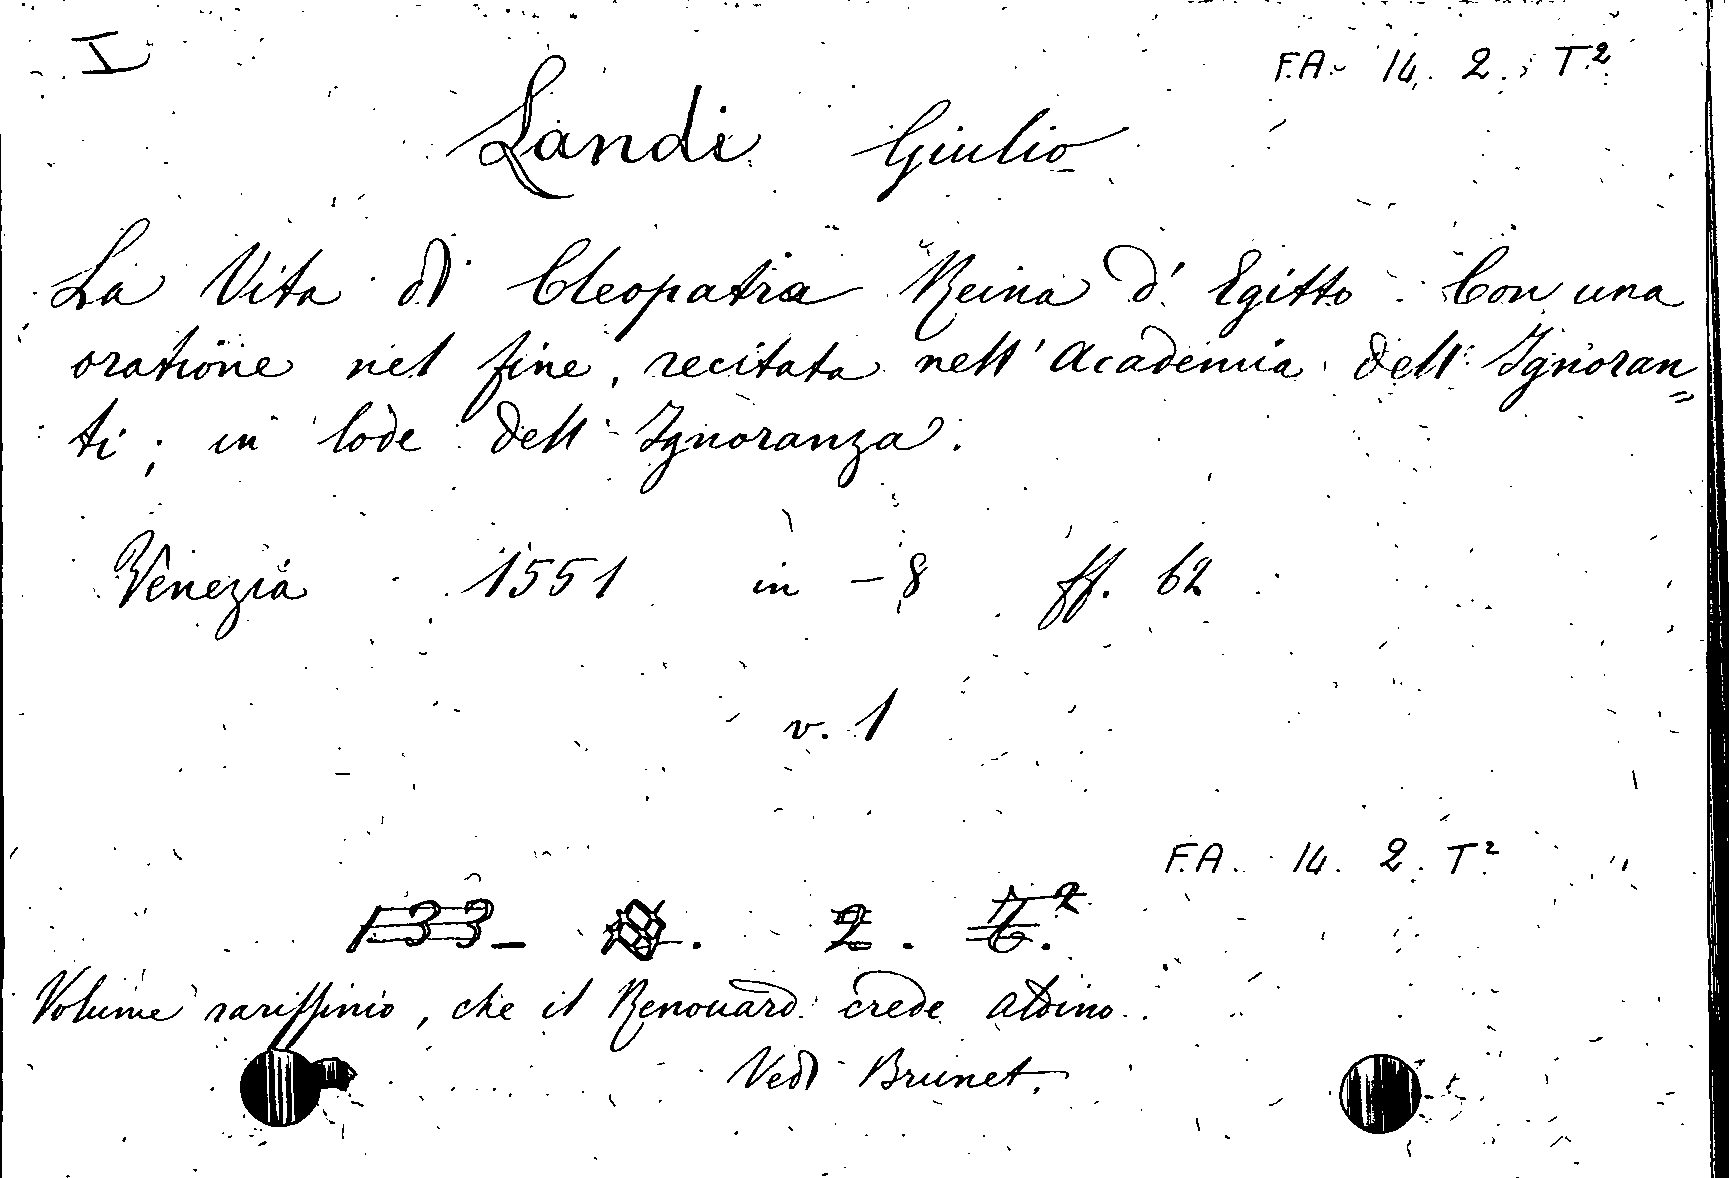 I
F.A. 14. 2. T²
Landi Giulio
La Vita di Cleopatra Reina d'Egitto. Con una
oratione nel fine, recitata nell'Academia dell'Ignoran=
ti; in lode dell'Ignoranza.
Venezia 1551 in-8 ff. 62
v. 1
F.A. 14. 2. T²
133- . 2. T.²
Volume rarissimo, che il Renouard crede aldino.
Vedi Brunet.